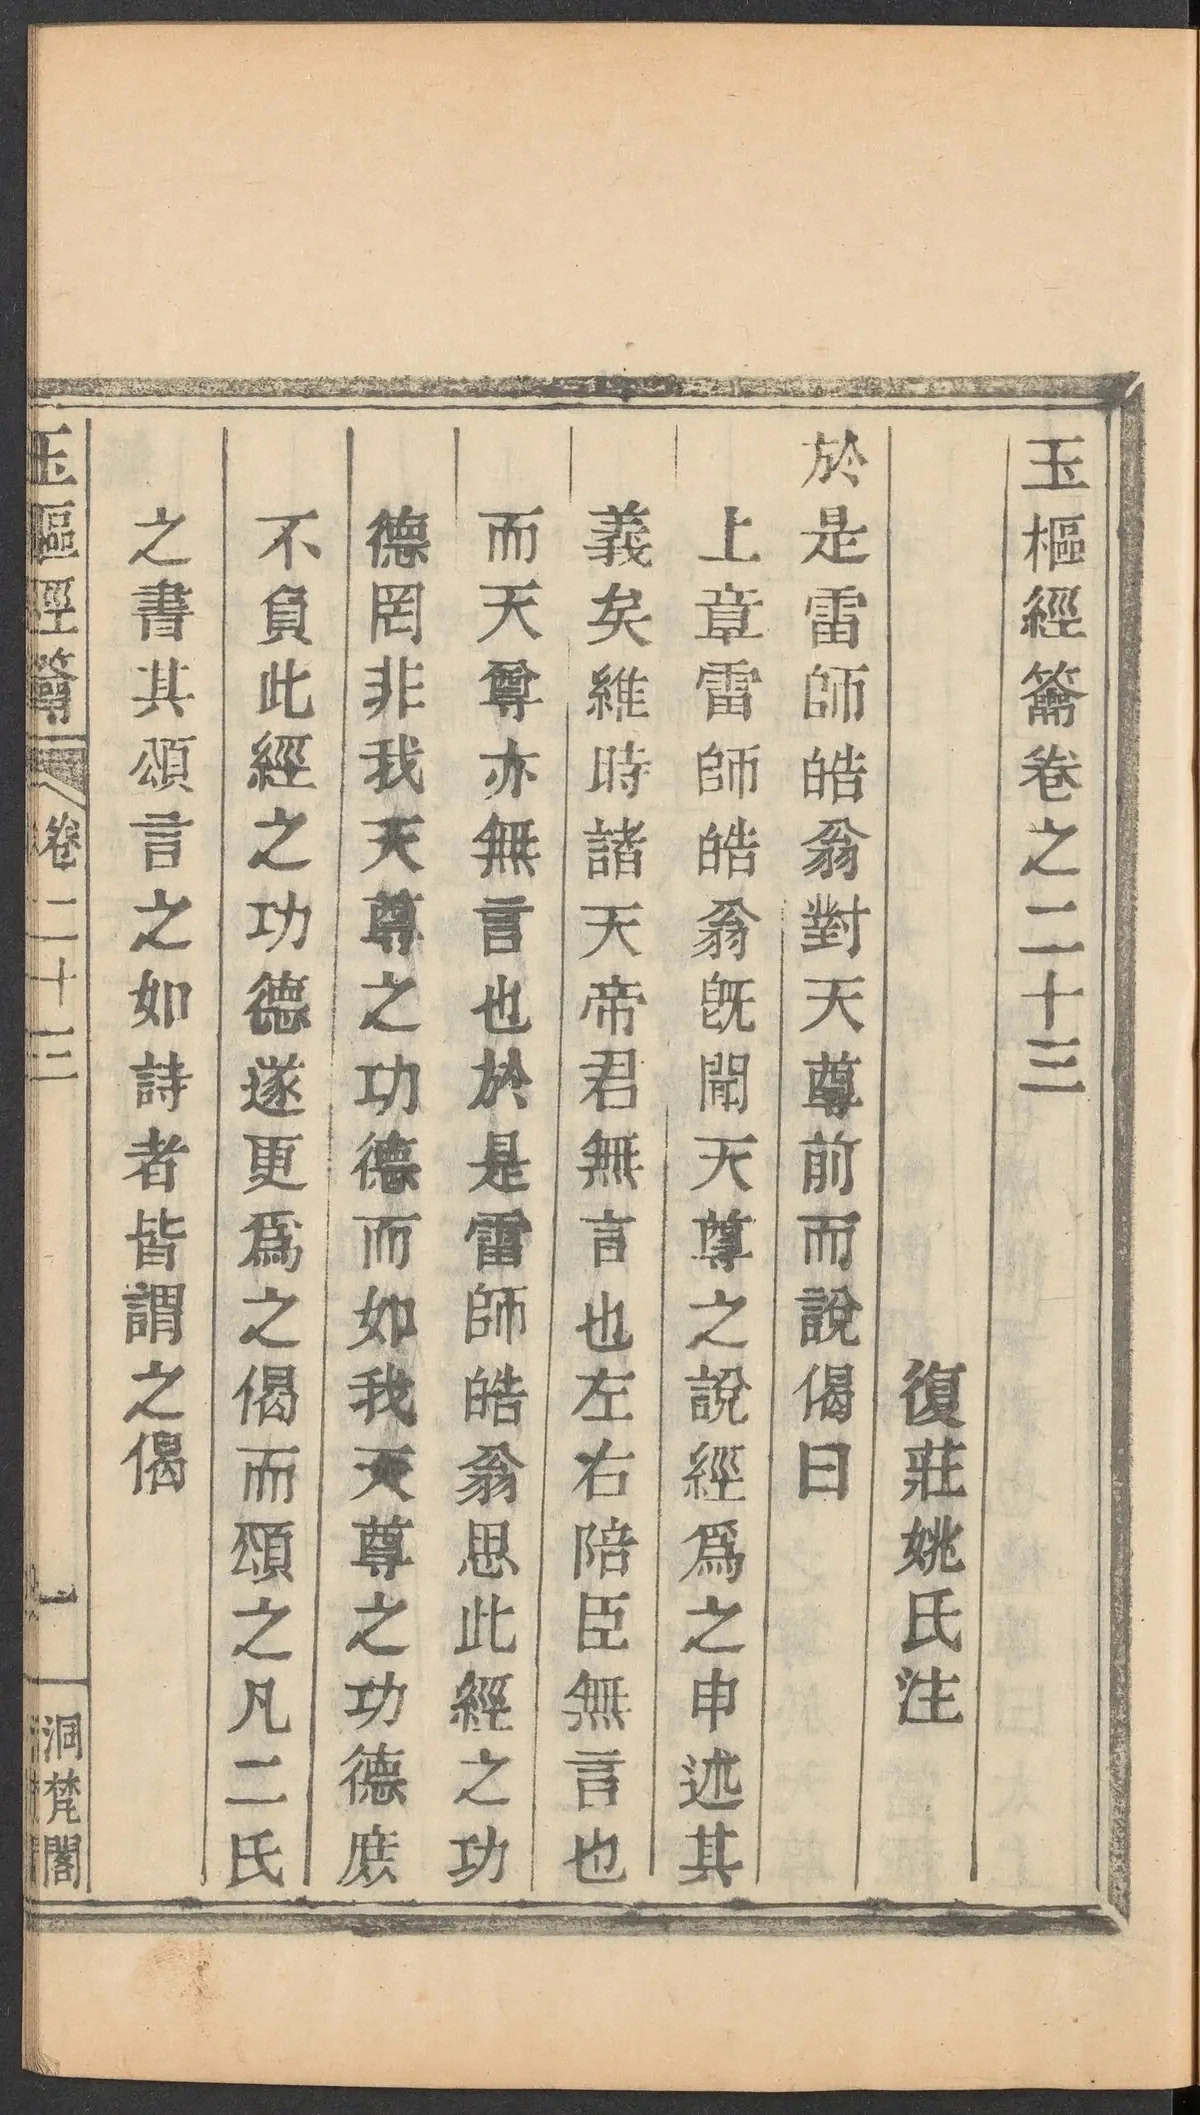 玉樞經籥卷之二十三
復莊姚氏注
於是雷師皓翁對天尊前而說偈曰
上章雷師皓翁旣聞天尊之說經爲之申述其
義矣維時諸天帝君無言也左右陪臣無言也
而天尊亦無言也於是雷師皓翁思此經之功
德罔非我天尊之功德而如我天尊之功德庶
不負此經之功德遂更爲之偈而頌之凡二氏
之書其頌言之如詩者皆謂之偈
玉樞經籥
卷二十三
一
洞梵閣